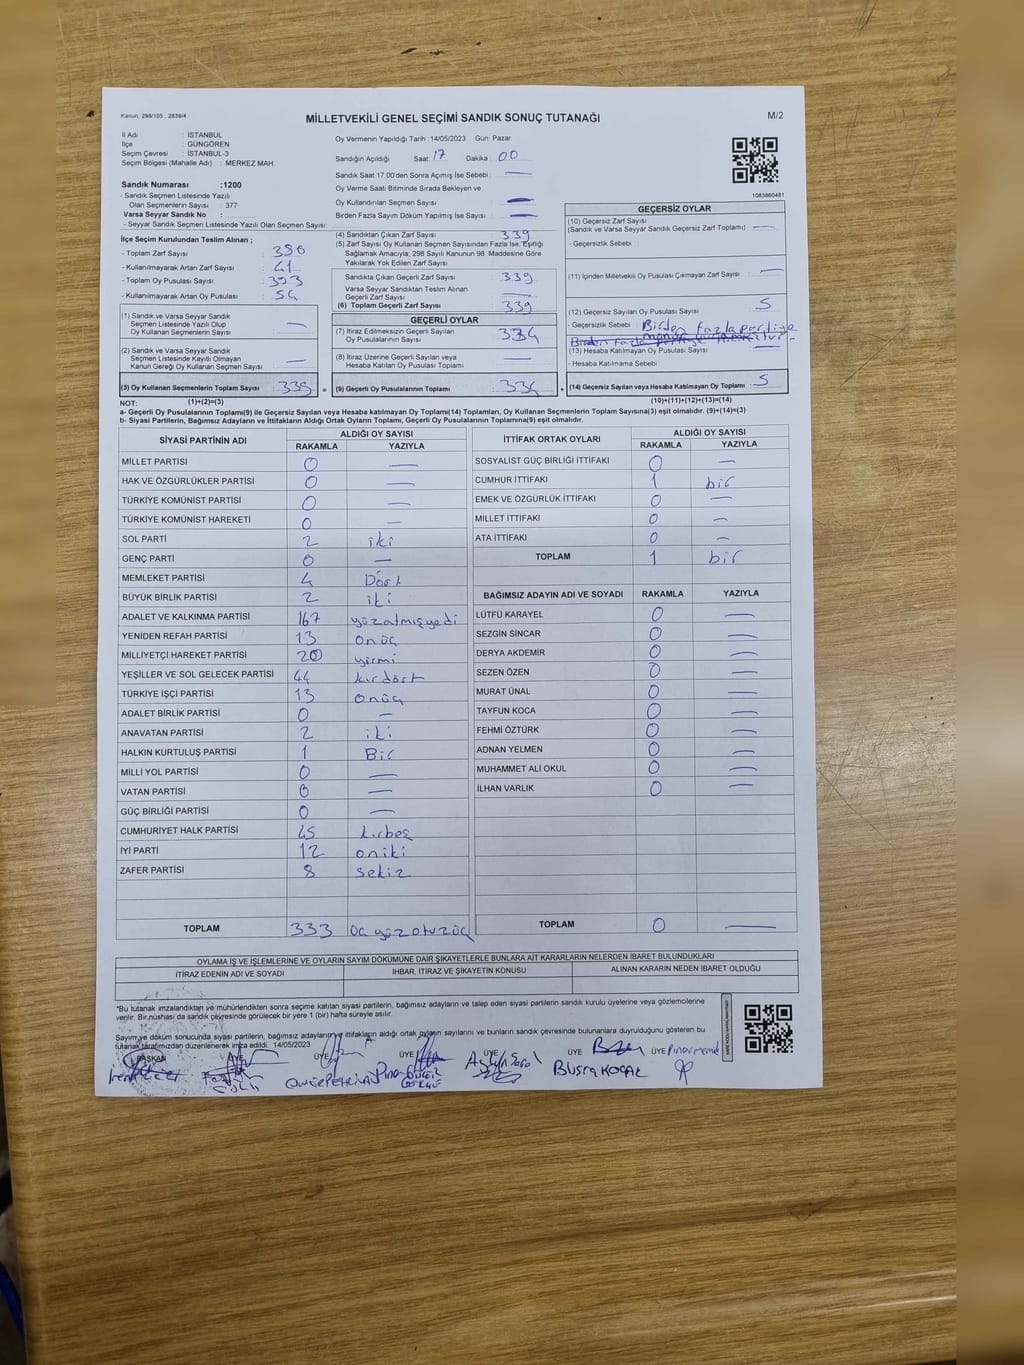 Kanun, 298/105 , 2839/4
MİLLETVEKİLİ GENEL SEÇİMİ SANDIK SONUÇ TUTANAĞI
M/2
İl Adı : İSTANBUL
İlçe : GÜNGÖREN
Seçim Çevresi : İSTANBUL-3
Seçim Bölgesi (Mahalle Adı) : MERKEZ MAH.
Sandık Numarası :1200
- Sandık Seçmen Listesinde Yazılı
Olan Seçmenlerin Sayısı : 377
Varsa Seyyar Sandık No : ............
- Seyyar Sandık Seçmen Listesinde Yazılı Olan Seçmen Sayısı:
İlçe Seçim Kurulundan Teslim Alınan ;
- Toplam Zarf Sayısı : 380
- Kullanılmayarak Artan Zarf Sayısı : 41
- Toplam Oy Pusulası Sayısı : 393
- Kullanılmayarak Artan Oy Pusulası : 54
(1) Sandık ve Varsa Seyyar Sandık
Seçmen Listesinde Yazılı Olup
Oy Kullanan Seçmenlerin Sayısı : —
(2) Sandık ve Varsa Seyyar Sandık
Seçmen Listesinde Kayıtlı Olmayan
Kanun Gereği Oy Kullanan Seçmen Sayısı : —
(3) Oy Kullanan Seçmenlerin Toplam Sayısı : 339
Oy Vermenin Yapıldığı Tarih :14/05/2023 Gün: Pazar
Sandığın Açıldığı Saat: 17 Dakika : 00
Sandık Saat 17:00'den Sonra Açımış İse Sebebi : —
Oy Verme Saati Bitiminde Sırada Bekleyen ve
Oy Kullandırılan Seçmen Sayısı : —
Birden Fazla Sayım Döküm Yapılmış İse Sayısı : —
(4) Sandıktan Çıkan Zarf Sayısı : 339
(5) Zarf Sayısı Oy Kullanan Seçmen Sayısından Fazla İse, Eşitliği
Sağlamak Amacıyla; 298 Sayılı Kanunun 98. Maddesine Göre
Yakılarak Yok Edilen Zarf Sayısı :
Sandıkta Çıkan Geçerli Zarf Sayısı : 339
Varsa Seyyar Sandıktan Teslim Alınan
Geçerli Zarf Sayısı : —
(6) Toplam Geçerli Zarf Sayısı : 339
GEÇERLİ OYLAR
(7) İtiraz Edilmeksizin Geçerli Sayılan
Oy Pusulalarının Sayısı : 334
(8) İtiraz Üzerine Geçerli Sayılan veya
Hesaba Katılan Oy Pusulası Toplamı : —
= (9) Geçerli Oy Pusulalarının Toplamı : 334
1083860481
GEÇERSİZ OYLAR
(10) Geçersiz Zarf Sayısı
(Sandık ve Varsa Seyyar Sandık Geçersiz Zarf Toplamı) : —
- Geçersizlik Sebebi
(11) İçinden Milletvekili Oy Pusulası Çıkmayan Zarf Sayısı : —
(12) Geçersiz Sayılan Oy Pusulası Sayısı : 5
- Geçersizlik Sebebi Birden fazla partiye
(13) Hesaba Katılmayan Oy Pusulası Sayısı : —
- Hesaba Katılmama Sebebi :
+ (14) Geçersiz Sayılan veya Hesaba Katılmayan Oy Toplamı : 5
NOT: (1)+(2)=(3)
(10)+(11)+(12)+(13)=(14)
a- Geçerli Oy Pusulaları Toplamı(9) ile Geçersiz Sayılan veya Hesaba katılmayan Oy Toplamı(14) Toplamları, Oy Kullanan Seçmenlerin Toplam Sayısına(3) eşit olmalıdır. (9)+(14)=(3)
b- Siyasi Partilerin, Bağımsız Adayların ve İttifakların Aldığı Ortak Oyların Toplamı, Geçerli Oy Pusulalarının Toplamına(9) eşit olmalıdır.
SİYASİ PARTİNİN ADI ALDIĞI OY SAYISI
RAKAMLA YAZIYLA
MİLLET PARTİSİ 0 —
HAK VE ÖZGÜRLÜKLER PARTİSİ 0 —
TÜRKİYE KOMÜNİST PARTİSİ 0 —
TÜRKİYE KOMÜNİST HAREKETİ 0 —
SOL PARTİ 2 iki
GENÇ PARTİ 0 —
MEMLEKET PARTİSİ 4 Dört
BÜYÜK BİRLİK PARTİSİ 2 iki
ADALET VE KALKINMA PARTİSİ 167 yüzatmışyedi
YENİDEN REFAH PARTİSİ 13 onüç
MİLLİYETÇİ HAREKET PARTİSİ 20 yirmi
YEŞİLLER VE SOL GELECEK PARTİSİ 44 kırdört
TÜRKİYE İŞÇİ PARTİSİ 13 onüç
ADALET BİRLİK PARTİSİ 0 —
ANAVATAN PARTİSİ 2 iki
HALKIN KURTULUŞ PARTİSİ 1 Bir
MİLLİ YOL PARTİSİ 0 —
VATAN PARTİSİ 0 —
GÜÇ BİRLİĞİ PARTİSİ 0 —
CUMHURİYET HALK PARTİSİ 45 kırbeş
İYİ PARTİ 12 oniki
ZAFER PARTİSİ 8 sekiz
TOPLAM 333 Üç yüzotuzüç
İTTİFAK ORTAK OYLARI ALDIĞI OY SAYISI
RAKAMLA YAZIYLA
SOSYALİST GÜÇ BİRLİĞİ İTTİFAKI 0 —
CUMHUR İTTİFAKI 1 bir
EMEK VE ÖZGÜRLÜK İTTİFAKI 0 —
MİLLET İTTİFAKI 0 —
ATA İTTİFAKI 0 —
TOPLAM 1 bir
BAĞIMSIZ ADAYIN ADI VE SOYADI RAKAMLA YAZIYLA
LÜTFÜ KARAYEL 0 —
SEZGİN SİNCAR 0 —
DERYA AKDEMİR 0 —
SEZEN ÖZEN 0 —
MURAT ÜNAL 0 —
TAYFUN KOCA 0 —
FEHMİ ÖZTÜRK 0 —
ADNAN YELMEN 0 —
MUHAMMET ALİ OKUL 0 —
İLHAN VARLIK 0 —
TOPLAM 0 —
OYLAMA İŞ VE İŞLEMLERİNE VE OYLARIN SAYIM DÖKÜMÜNE DAİR ŞİKAYETLERLE BUNLARA AİT KARARLARIN NELERDEN İBARET BULUNDUKLARI
İTİRAZ EDENİN ADI VE SOYADI İHBAR, İTİRAZ VE ŞİKAYETİN KONUSU ALINAN KARARIN NEDEN İBARET OLDUĞU
*Bu tutanak imzalandıktan ve mühürlendikten sonra seçime katılan siyasi partilerin, bağımsız adayların ve talep eden siyasi partilerin sandık kurulu üyelerine veya gözlemcilerine
verilir. Bir nüshası da sandık çevresinde görülecek bir yere 1 (bir) hafta süreyle asılır.
Sayım ve döküm sonucunda siyasi partilerin, bağımsız adayların ve ittifakların aldığı ortak oyların sayılarını ve bunların sandık çevresinde bulunanlara duyrulduğunu gösteren bu
tutanak tarafımızdan düzenlenerek imza edildi. 14/05/2023
BAŞKAN ÜYE ÜYE ÜYE ÜYE ÜYE ÜYE
BUSRA KOÇAK